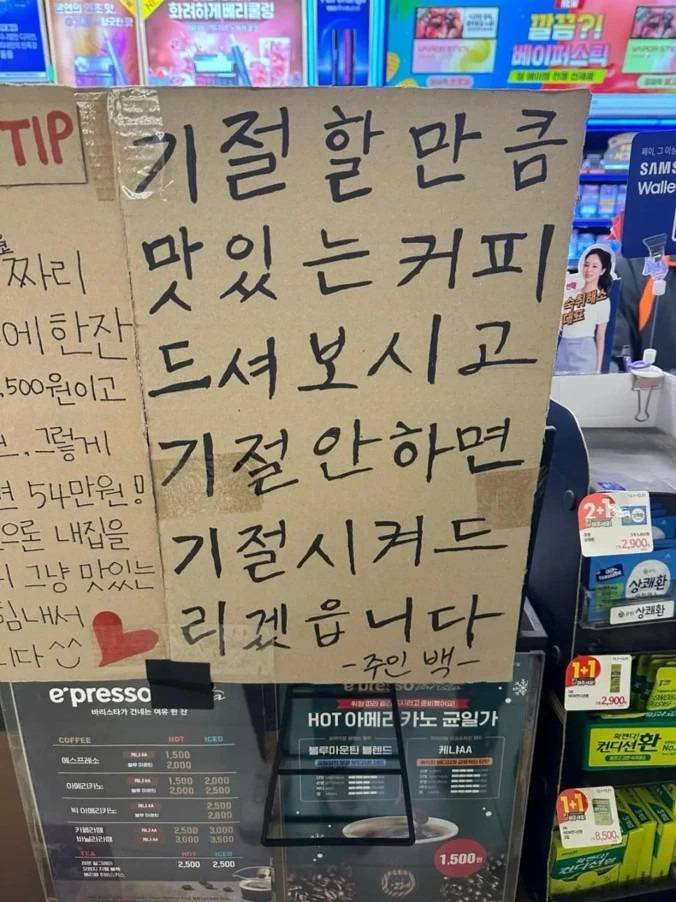 화려하게베리쿨링
깔끔?!
베이퍼스틱
TIP
기절할만큼
맛있는커피
드셔보시고
기절안하면
기절시켜드
리겠읍니다
-주인 백-
짜리
에한잔
,500원이고
그렇게
54만원!
내집을
그냥 맛있는
힘내서
니다
페이, 그 이상
SAMS
Walle
숙취해소
대표
2+1
2,900
상쾌환
상쾌환
1+1
2,900
확깬다!
컨디션환
No.
1+1
8,500
확깬다!
컨디션환
e·presso
바리스타가 건네는 여유 한 잔
COFFEE HOT ICED
에스프레소 케냐AA 1,500
블루 마운틴 2,000
아메리카노 케냐AA 1,500 2,000
블루 마운틴 2,000 2,500
빅 아메리카노 2,500
2,800
카페라떼 2,500 3,000
바닐라라떼 3,000 3,500
TEA HOT ICED
2,500 2,500
HOT 아메리카노 균일가
블루마운틴 블렌드
케냐AA
1,500원